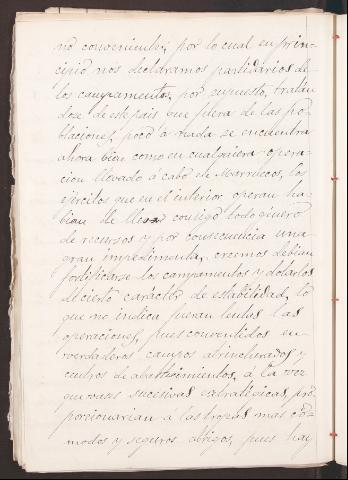 no convenientes, por lo cual en prin-
cipio nos declaramos partidarios de
los campamentos, por supuesto, tratan
dose de este pais que fuera de las po-
blaciones, poco á nada se encuentra
ahora bien como en cualquiera opera-
cion llevado á cabo de Marruecos, los
ejércitos que en el interior operan ha-
bian de llevar consigo todo género
de recursos y por consecuencia una
gran impedimenta, creemos debian
fortificarse los campamentos y dotarlos
de cierto carácter de estabilidad, lo
que no indica fueran lentas las
operaciones, pues convertidos en
verdaderos campos atrincherados y
centros de abastecimientos, á la vez
que bases sucesivas estratégicas, pro
porcionarian á las tropas mas có-
modos y seguros abrigos, pues hay